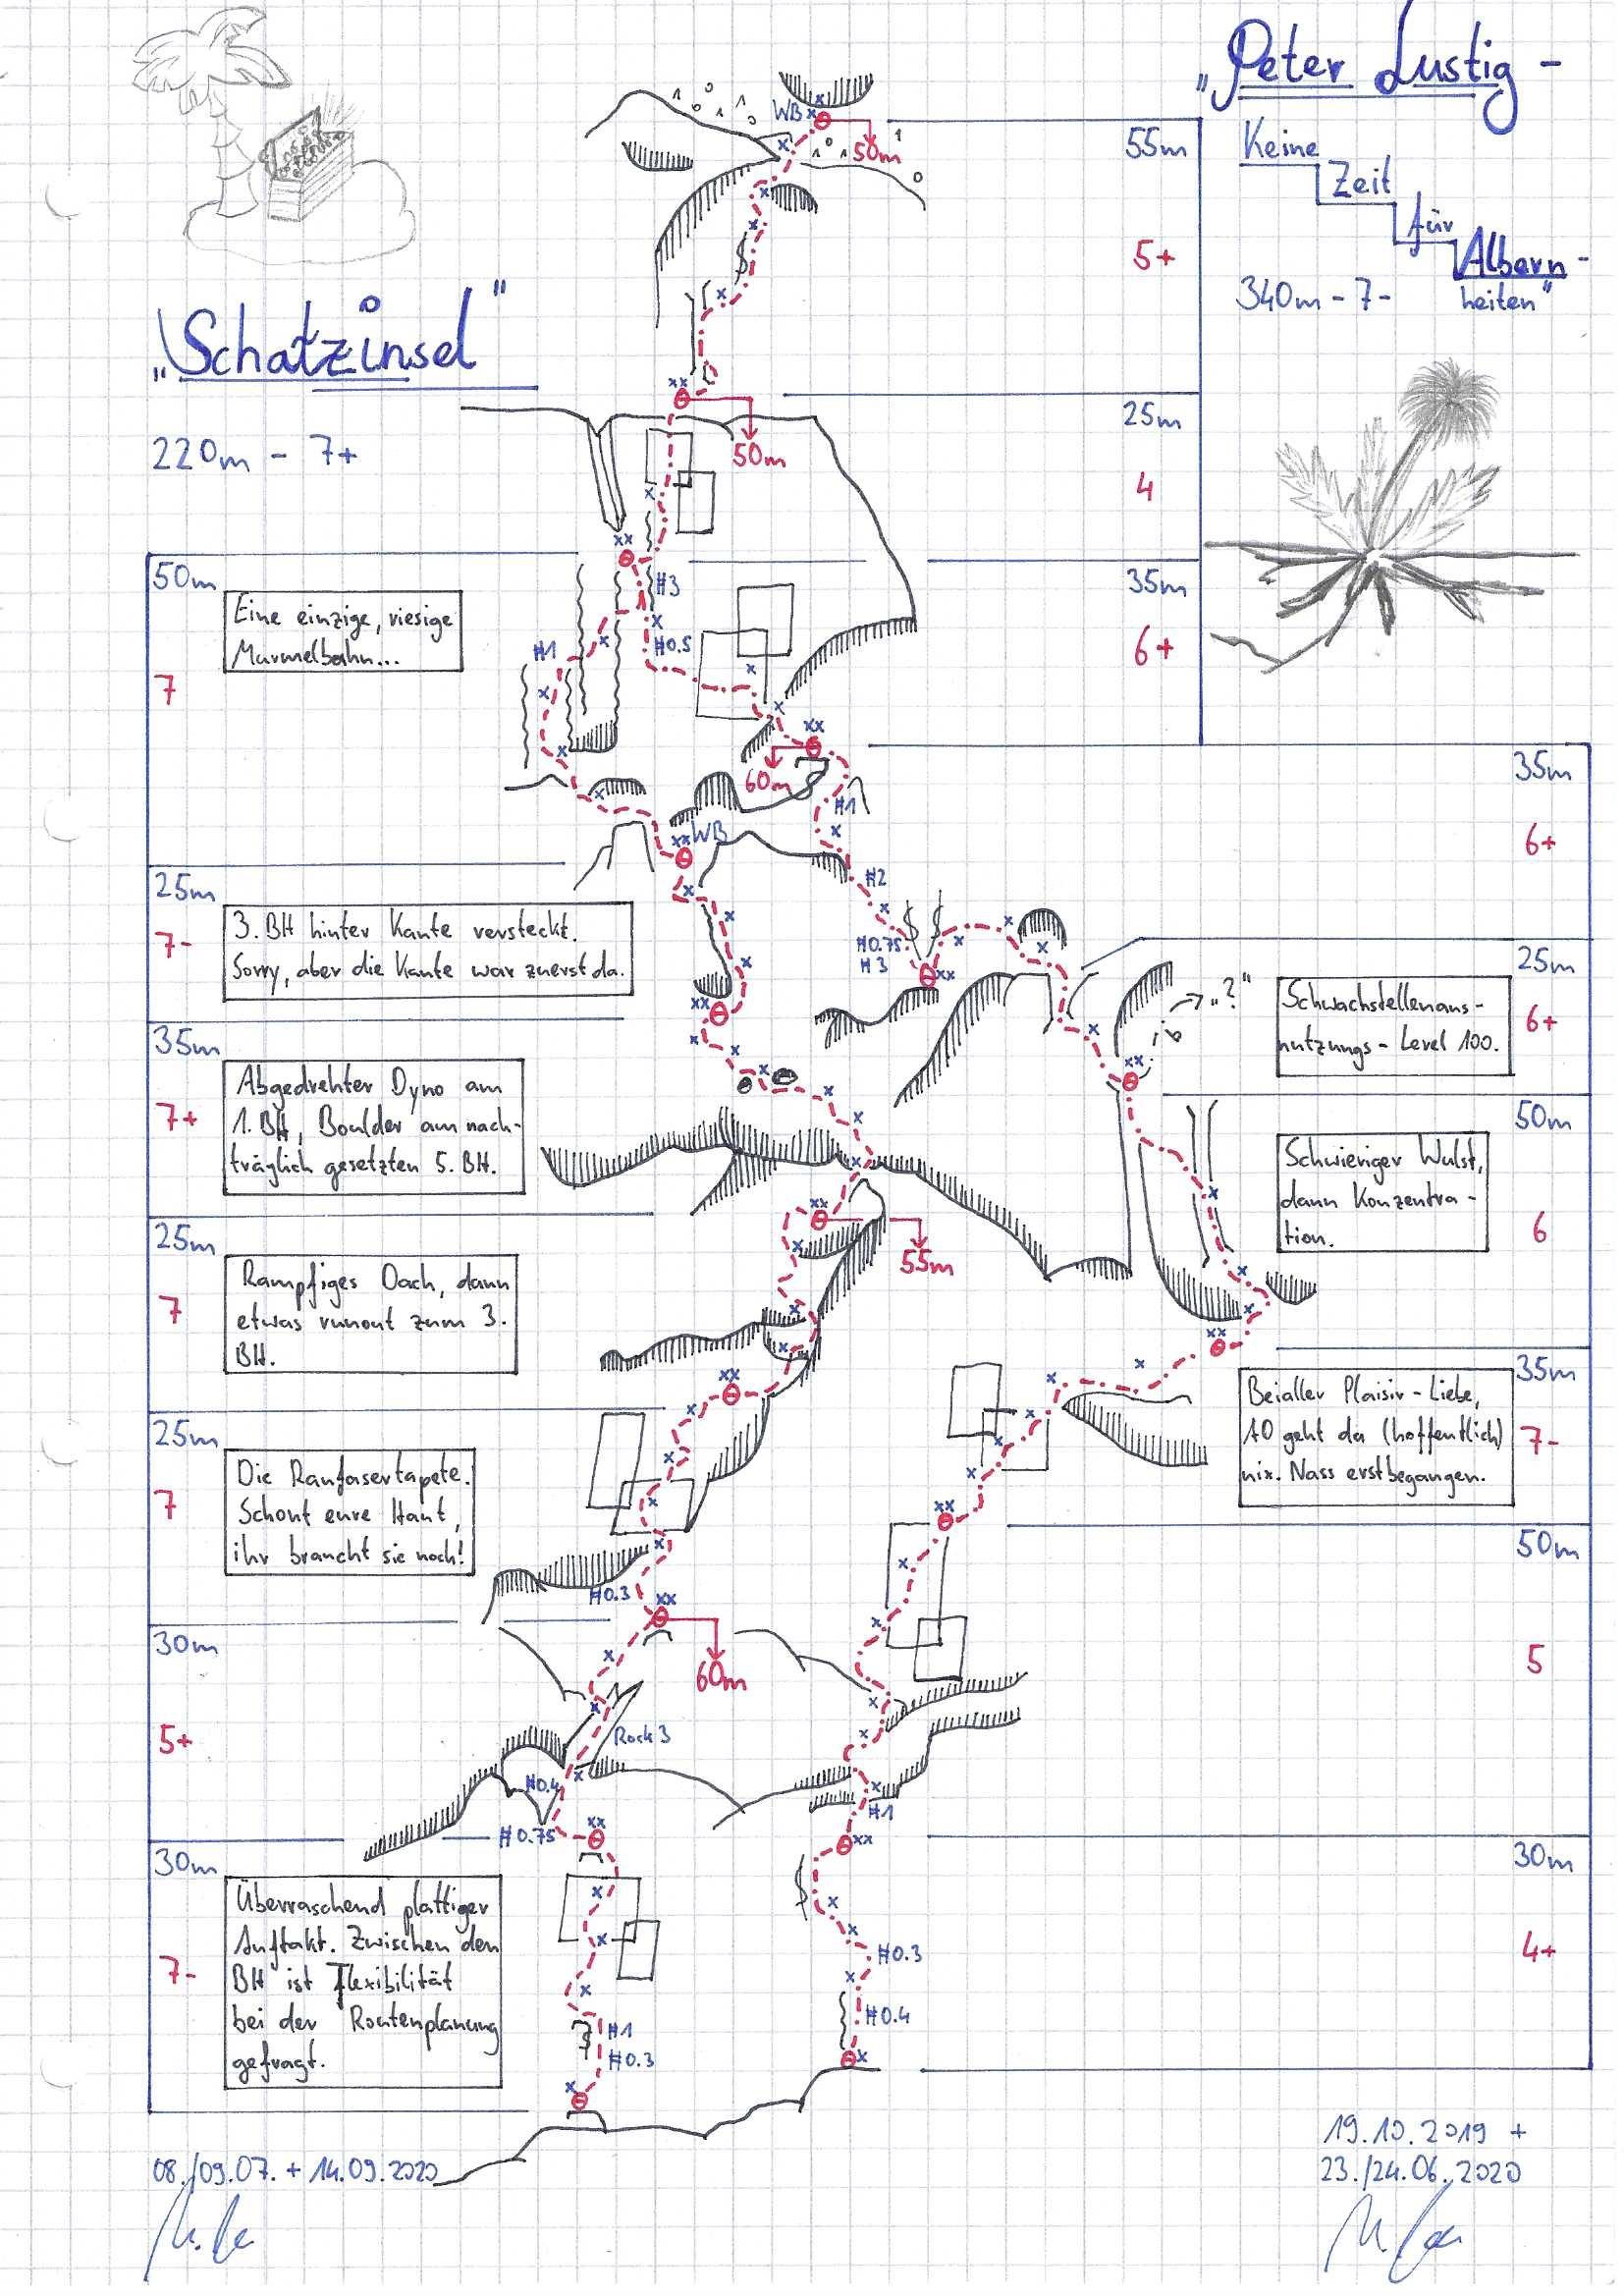 „Peter Lustig -
Keine
Zeit
für
Albern-
heiten“
340m - 7-
„Schatzinsel“
220m - 7+
WB
50m
55m
5+
50m
25m
4
35m
6+
#3
#0.5
#1
60m
WB
#1
#2
#0.75
#3
50m
7
Eine einzige, riesige
Murmelbahn...
25m
7-
3. BH hinter Kante versteckt.
Sorry, aber die Kante war zuerst da.
35m
7+
Abgedrehter Dyno am
1. BH, Boulder am nach-
träglich gesetzten 5. BH.
25m
7
Rampfiges Dach, dann
etwas runout zum 3.
BH.
55m
25m
7
Die Raufasertapete.
Schont eure Haut,
ihr braucht sie noch!
#0.3
60m
30m
5+
Rock 3
#0.4
#0.75
30m
7-
Überraschend plattiger
Auftakt. Zwischen den
BH ist Flexibilität
bei der Routenplanung
gefragt.
#1
#0.3
35m
6+
25m
6+
„?“
Schwachstellenaus-
nutzungs - Level 100.
50m
6
Schwieriger Wulst,
dann Konzentra-
tion.
35m
7-
Bei aller Plaisir - Liebe,
A0 geht da (hoffentlich)
nix. Nass erstbegangen.
50m
5
#1
30m
4+
#0.3
#0.4
08./09.07. + 14.09.2020
19.10.2019 +
23./24.06.2020